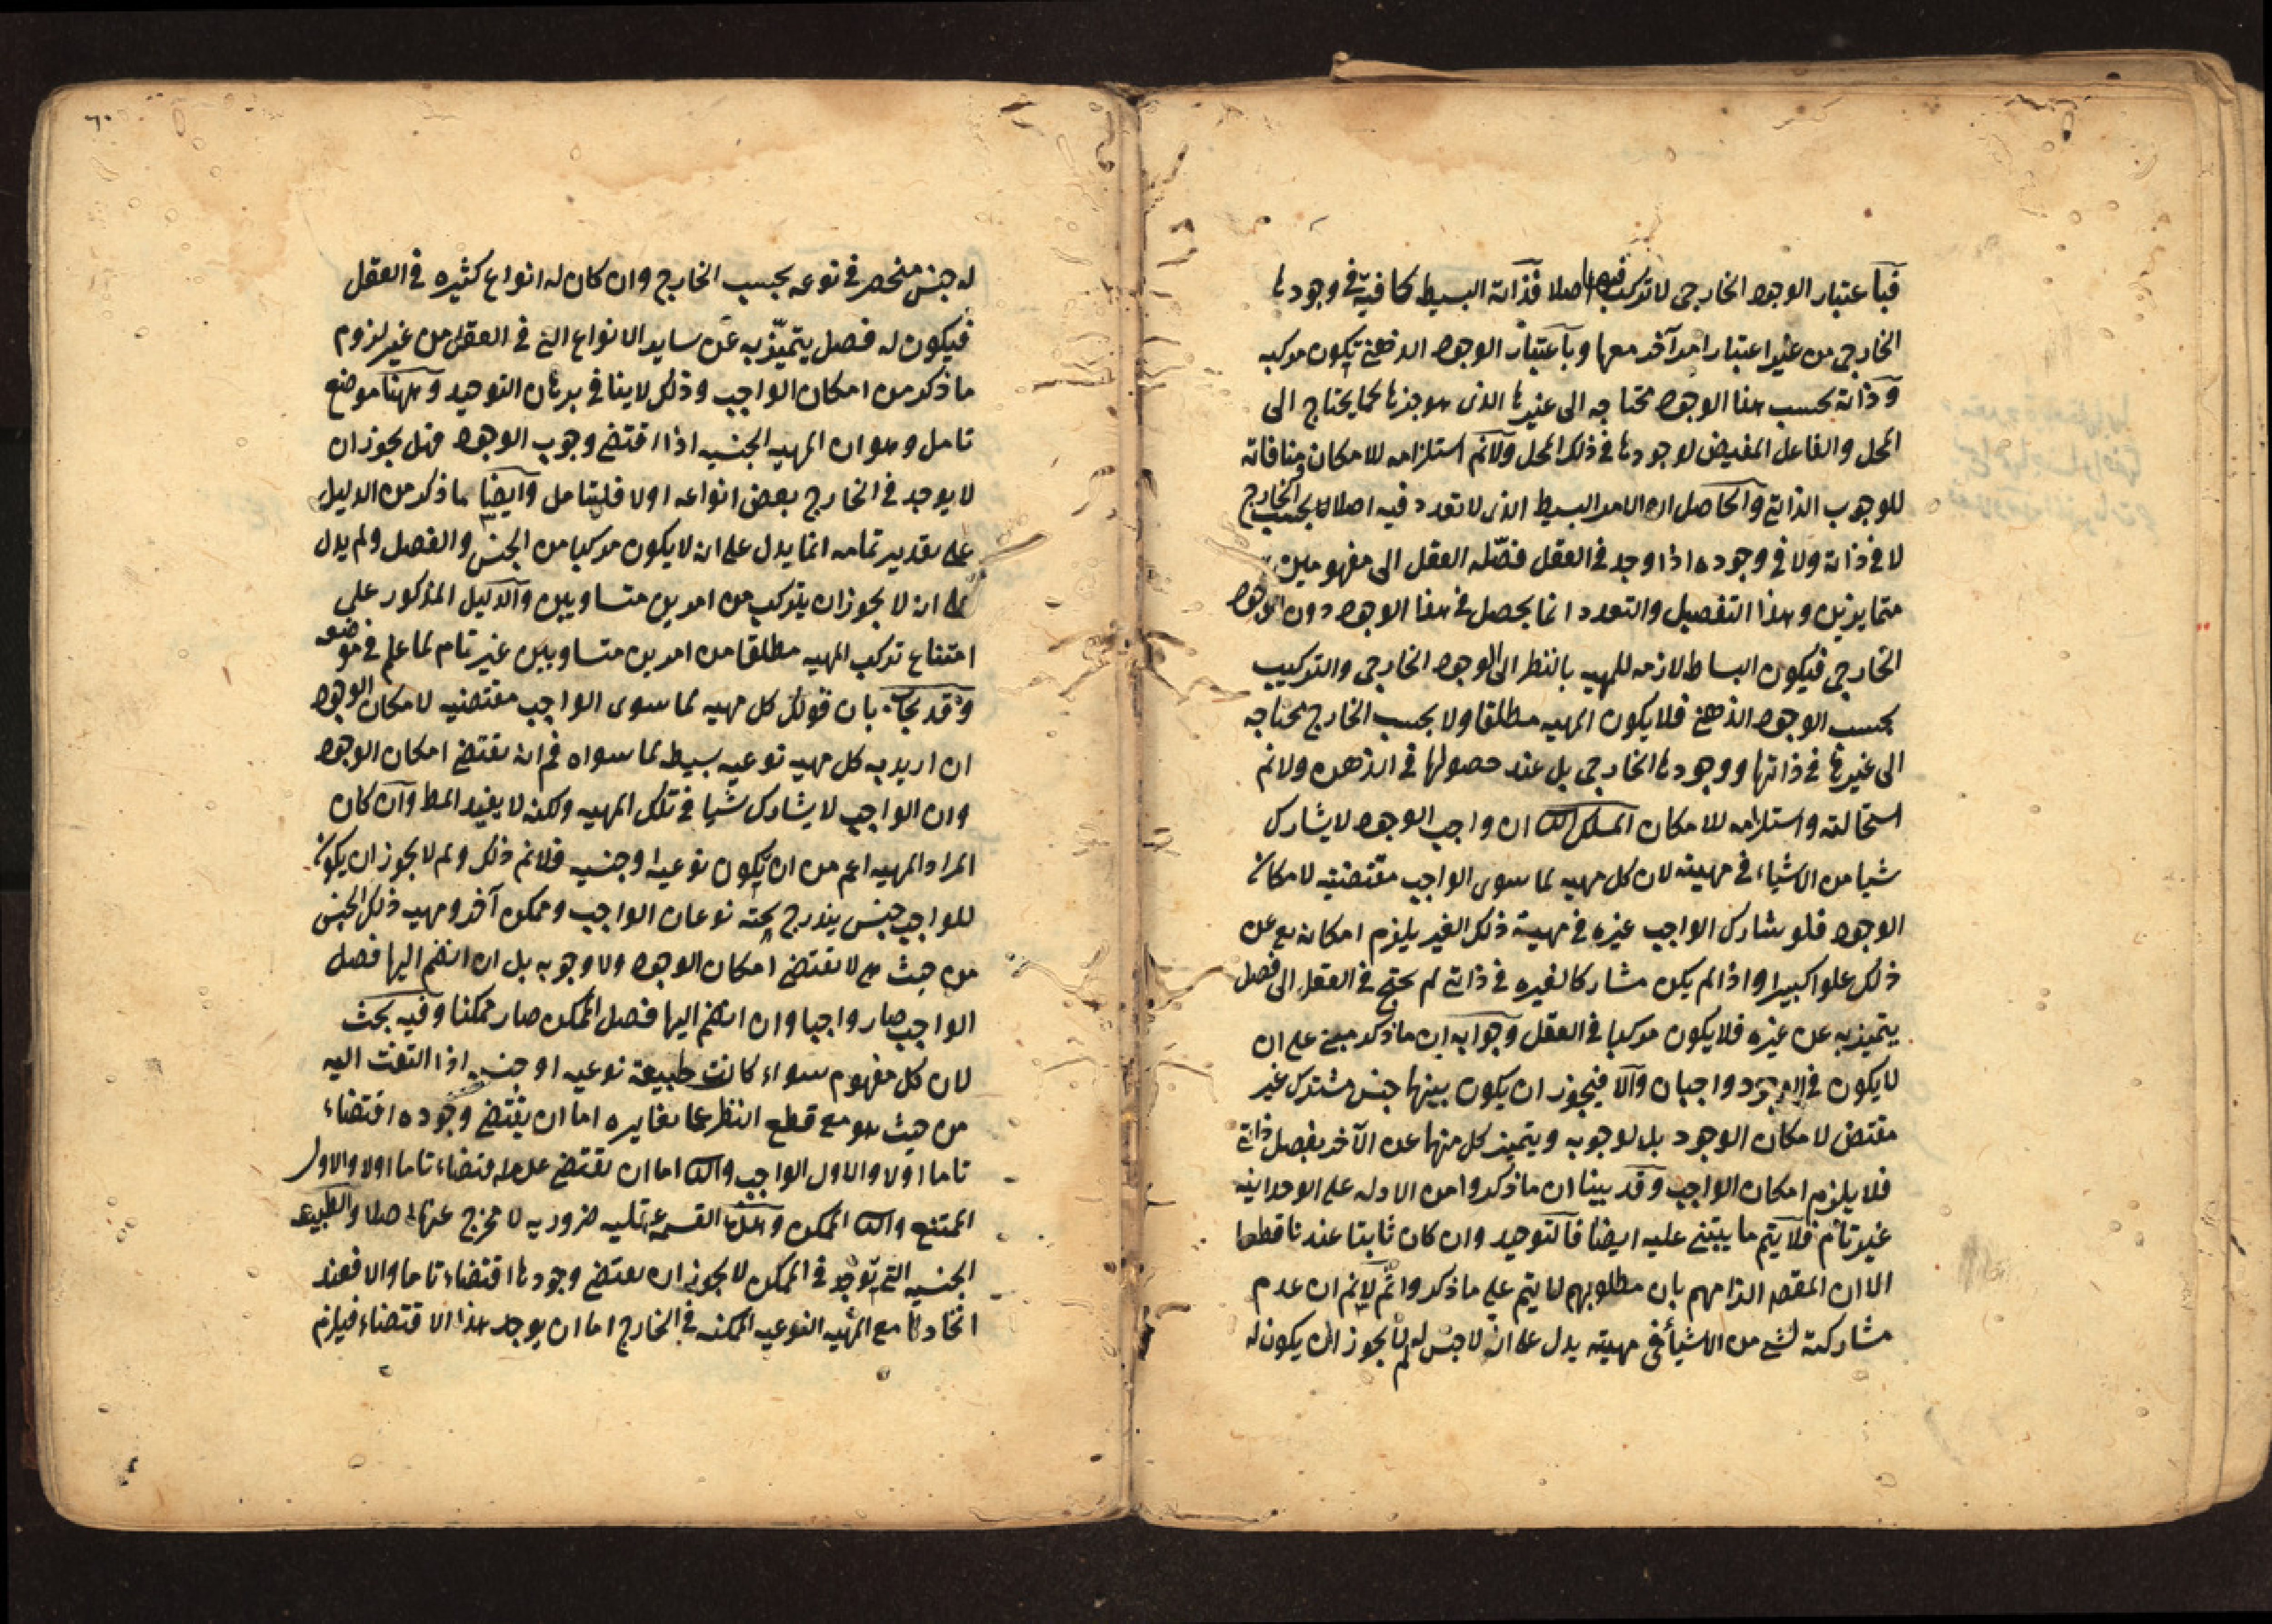 فباعتبار الوجود الخارجى لا تركب فيها اصلا فذاته البسيط كافية فى وجودها
الخارجى من غير اعتبار امر آخر معها وباعتبار الوجود الذهنى تكون مركبه
وذاته بحسب هذا الوجود محتاجه الى غيرها الذى هو جزئها كما يحتاج الى
المحل والفاعل المفيض لوجودها فى ذلك المحل ولانم استلزامه للامكان ومنافاته
للوجوب الذاتى والحاصل ان الامر البسيط الذى لا تعدد فيه اصلا بحسب الخارج
لا فى ذاته ولا فى وجوده اذا وجد فى العقل فصّله العقل الى مفهومين
متمايزين وهذا التفصيل والتعدد انما يحصل فى هذا الوجود دون الوجود
الخارجى فيكون البساطه لازمه للمهيه بالنظر الى الوجود الخارجى والتركيب
بحسب الوجود الذهنى فلا يكون المهيه مطلقا ولا بحسب الخارج محتاجه
الى غيرها فى ذاتها ووجودها الخارجى بل عند حصولها فى الذهن ولانم
استحالته واستلزامه للامكان المسلك الثا ان واجب الوجود لا يشارك
شيا من الاشياء فى مهيته لان كل مهيه لما سوى الواجب مقتضيته لامكان
الوجود فلو شارك الواجب غيره فى مهية ذلك الغير يلزم امكانه تع عن
ذلك علوا كبيرا واذا لم يكن مشاركا لغيره فى ذاتى لم يحتج فى العقل الى فصل
يتميز به عن غيره فلا يكون مركبا فى العقل وجوابه ان ما ذكر مبنى على ان
لا يكون فى الوجود واجبان والا فيجوز ان يكون بينهما جنس مشترك غير
مقتض لامكان الوجود بل لوجوبه ويتميز كل منهما عن الآخر بفصل ذاتى
فلا يلزم امكان الواجب وقد بينا ان ما ذكروا من الادله على الوحدانيه
غير تام فلا يتم ما يبتنى عليه ايضا فالتوحيد وان كان ثابتا عندنا قطعا
الا ان المقصد الزامهم بان مطلوبهم لا يتم على ما ذكروا ثم لانم ان عدم
مشاركته لشى من الاشيأ فى مهيته يدل على ان لا جنس له لم لا يجوز ان يكون له
٦٠
له جنس منحصر فى نوعه بحسب الخارج وان كان له انواع كثيره فى العقل
فيكون له فصل يتميّز به عن ساير الانواع التى فى العقل من غير لزوم
ما ذكر من امكان الواجب وذلك لا ينافى برهان التوحيد وههنا موضع
تامل وهو ان المهيه الجنسيه اذا اقتضى وجوب الوجود فهل يجوز ان
لا يوجد فى الخارج بعض انواعه اولا فليتامل وايضا ما ذكر من الدليل
على تقدير تمامه انما يدل على ان لا يكون مركبا من الجنس والفصل ولم يدل
على ان لا يجوز ان يتركب من امرين متساويين والدليل المذكور على
امتناع تركب المهيه مطلقا من امرين متساويين غير تام لما علم فى موضعه
وقد يجاب بان قولك كل مهيه لما سوى الواجب مقتضيه لامكان الوجود
ان اريد به كل مهيه نوعيه بسيطه لما سواه فم انه يقتضى امكان الوجود
وان الواجب لا يشارك شيا فى تلك المهيه ولكنه لا يفيد المط وان كان
المراد المهيه اعم من ان يكون نوعيه او جنسيه فلانم ذلك ولم لا يجوز ان يكون
للواجب جنس يندرج تحته نوعان الواجب وممكن آخر ومهيه ذلك الجنس
من حيث هى لا تقتضى امكان الوجود ولا وجوبه بل ان انضم اليها فصل
الواجب صار واجبا وان انضم اليها فصل الممكن صار ممكنا وفيه بحث
لان كل مفهوم سواء كانت طبيعة نوعيه او جنسيه اذا التفت اليه
من حيث هو مع قطع النظر عما يغايره اما ان يقتضى وجوده اقتضاء
تاما اولا والاول الواجب والثا اما ان يقتضى عدمه اقتضاء تاما اولا والاول
الممتنع والثا الممكن وهذه القسمه عقليه ضروريه لا مخرج عنها اصلا والطبيعه
الجنسيه التى توجد فى الممكن لا يجوز ان يقتضى وجودها اقتضاء تاما والا فعند
اتحادها مع المهيه النوعيه الممكنه فى الخارج اما ان يوجد هذا الاقتضاء فيلزم